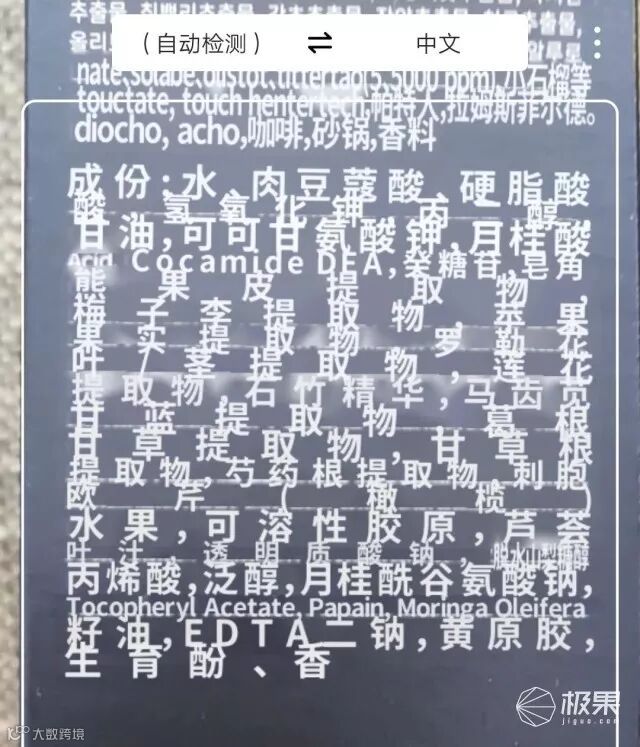 추출물, 자작추출물, 하수오추출물,
올리브
(自动检测) ⇌ 中文
알루로
nate,sotabe,olistot,titertao(5,5000 ppm),小石榴等
touctate, touch hentertech,帕特大,拉姆斯菲尔德。
diocho, acho,咖啡,砂锅,香料
成份:水、肉豆蔻酸、硬脂酸
酸,氢氧化钾,丙二醇,
甘油,可可甘氨酸钾,月桂酸
Acid, Cocamide DEA,癸糖苷,皂角
熊果皮提取物,
梅子李提取物,苹果
果实提取物,罗勒花
叶/茎提取物,莲花
提取物,石竹精华,马齿苋
甘蓝提取物,葛根
甘草提取物,甘草根
提取物,芍药根提取物,刺胞
欧芹(橄榄)
水果,可溶性胶原,芦荟
叶汁,透明质酸钠,脱水山梨糖醇
丙烯酸,泛醇,月桂酰谷氨酸钠,
Tocopheryl Acetate, Papain, Moringa Oleifera
籽油,EDTA二钠,黄原胶,
生育酚、香
极果
jiguo.com
大数跨境